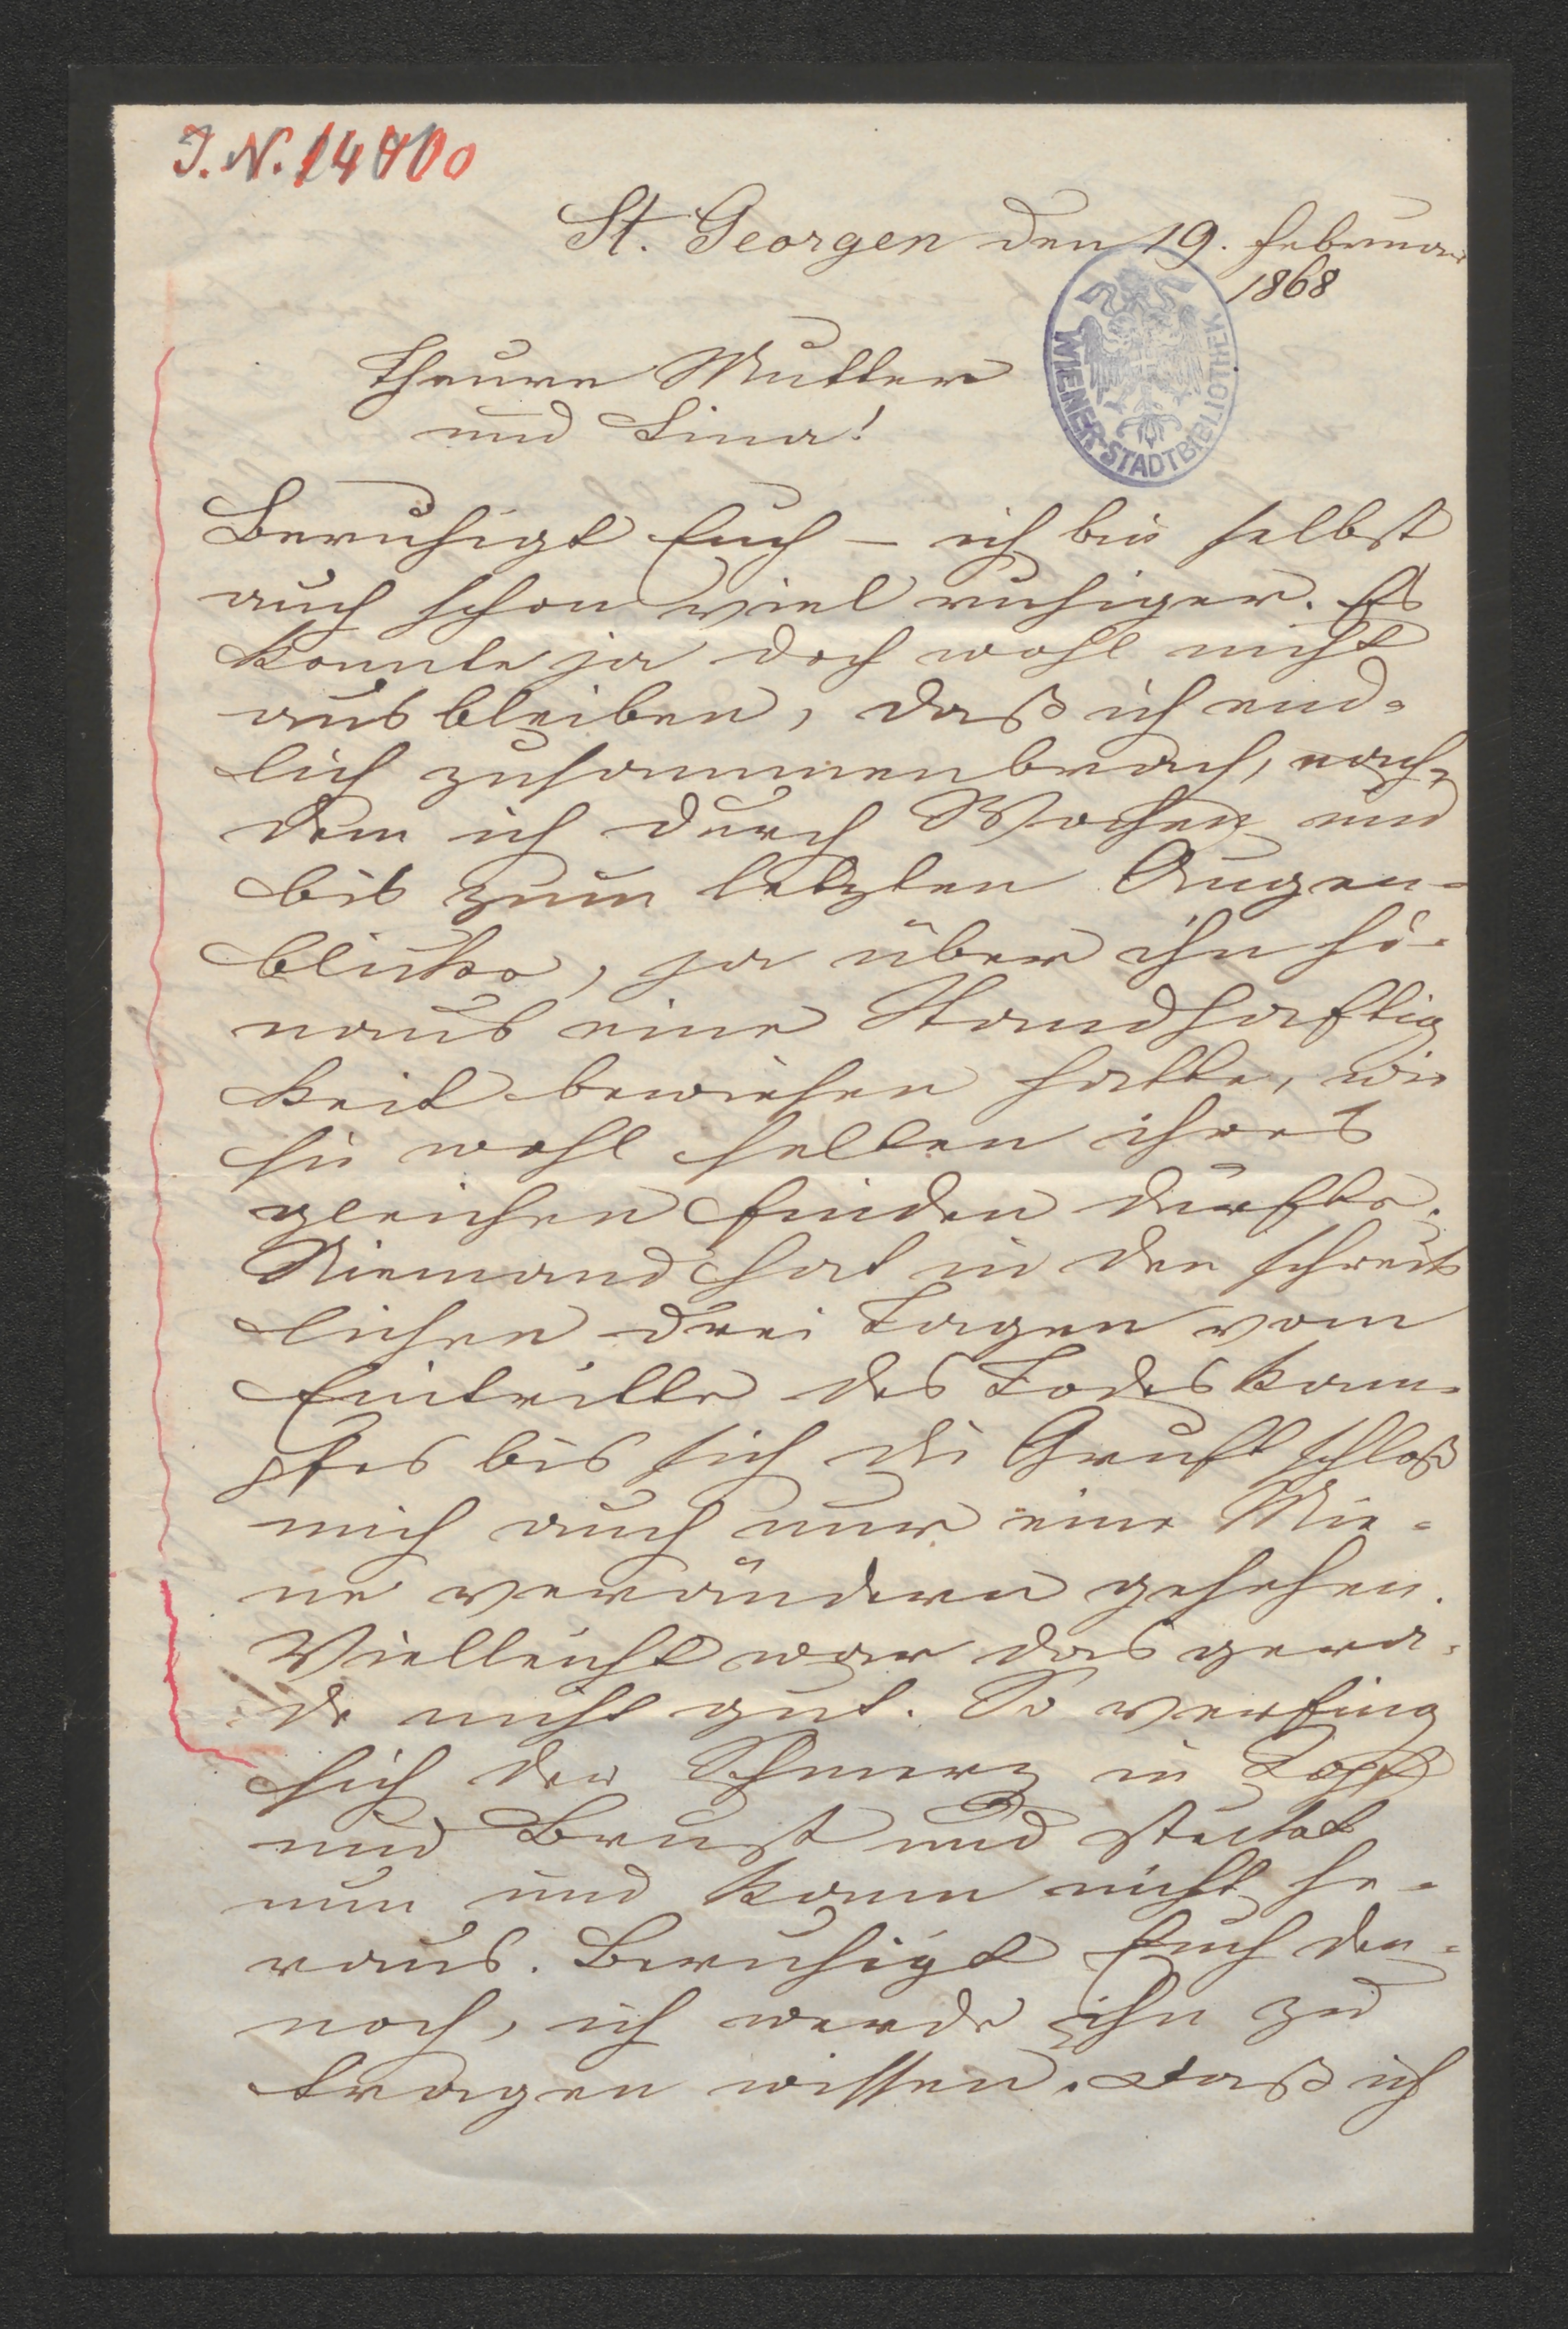 J. N. 14800
St. Georgen den 19. Februar
1868
WIENER-STADTBIBLIOTHEK
Theure Mutter
und Lina!
Beruhigt Euch – ich bin selbst
auch schon viel ruhiger. Es
konnte ja doch wohl nicht
ausbleiben, daß ich end-
lich zusammenbrach, nach-
dem ich durch Wochen und
bis zum letzten Augen-
blicke, ja über ihn hi-
naus eine Standhaftig
keit bewiesen hatte, wie
sie wohl selten ihres
gleichen finden dürfte.
Niemand hat in den schreck
lichen drei Tagen vom
Eintritte des Todeskam-
pfes bis sich die Gruft schloß
mich auch nur eine Mie-
ne verändern gesehen.
Vielleicht war das gera-
de nicht gut. So verfing
sich der Schmerz in Kopf
und Brust und stecket
nun und kann nicht he-
raus. Beruhigt Euch den-
noch, ich werde ihn zu
tragen wissen. Daß ich